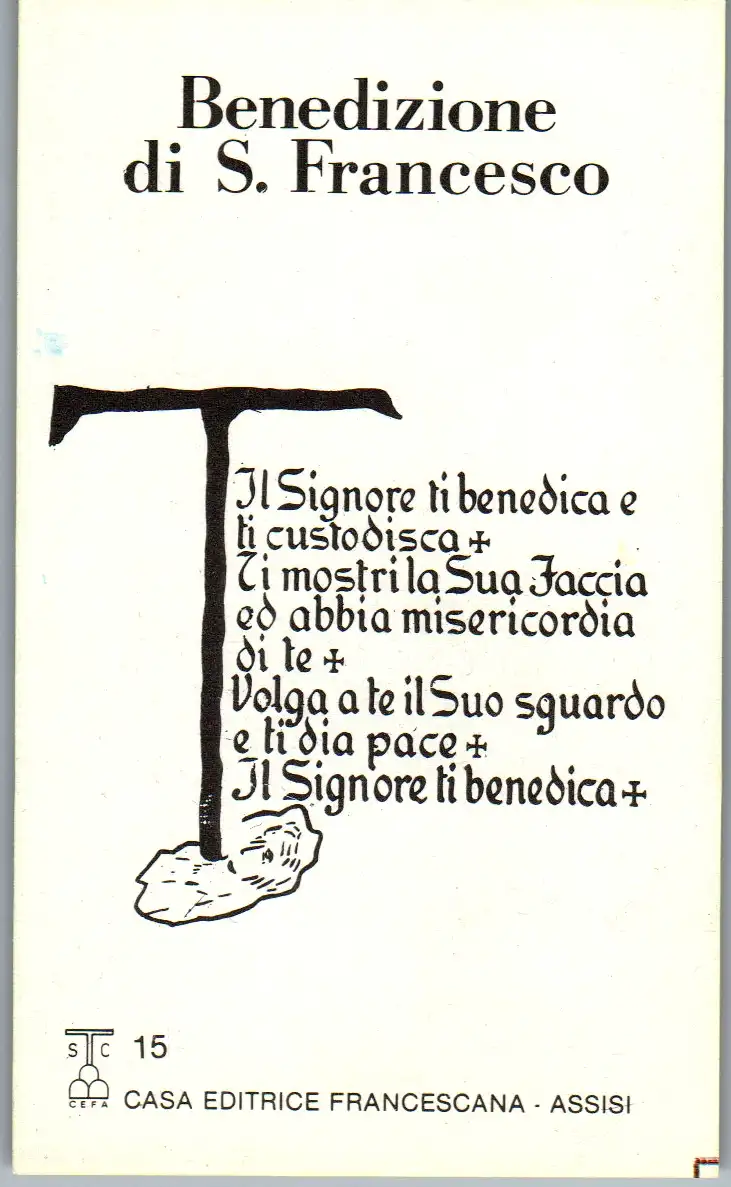 Benedizione
di S. Francesco
Il Signore ti benedica e
ti custodisca +
Ti mostri la Sua Faccia
ed abbia misericordia
di te +
Volga a te il Suo sguardo
e ti dia pace +
Il Signore ti benedica +
S C 15
CEFA CASA EDITRICE FRANCESCANA - ASSISI